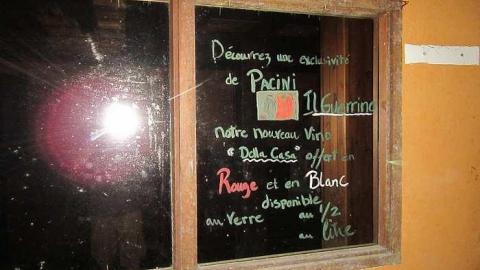 Découvrez une exclusivité
de PACINI
IL Guerrino
notre nouveau Vino
"Della Casa" offert en
Rouge et en Blanc
disponible
au verre au 1/2
au litre